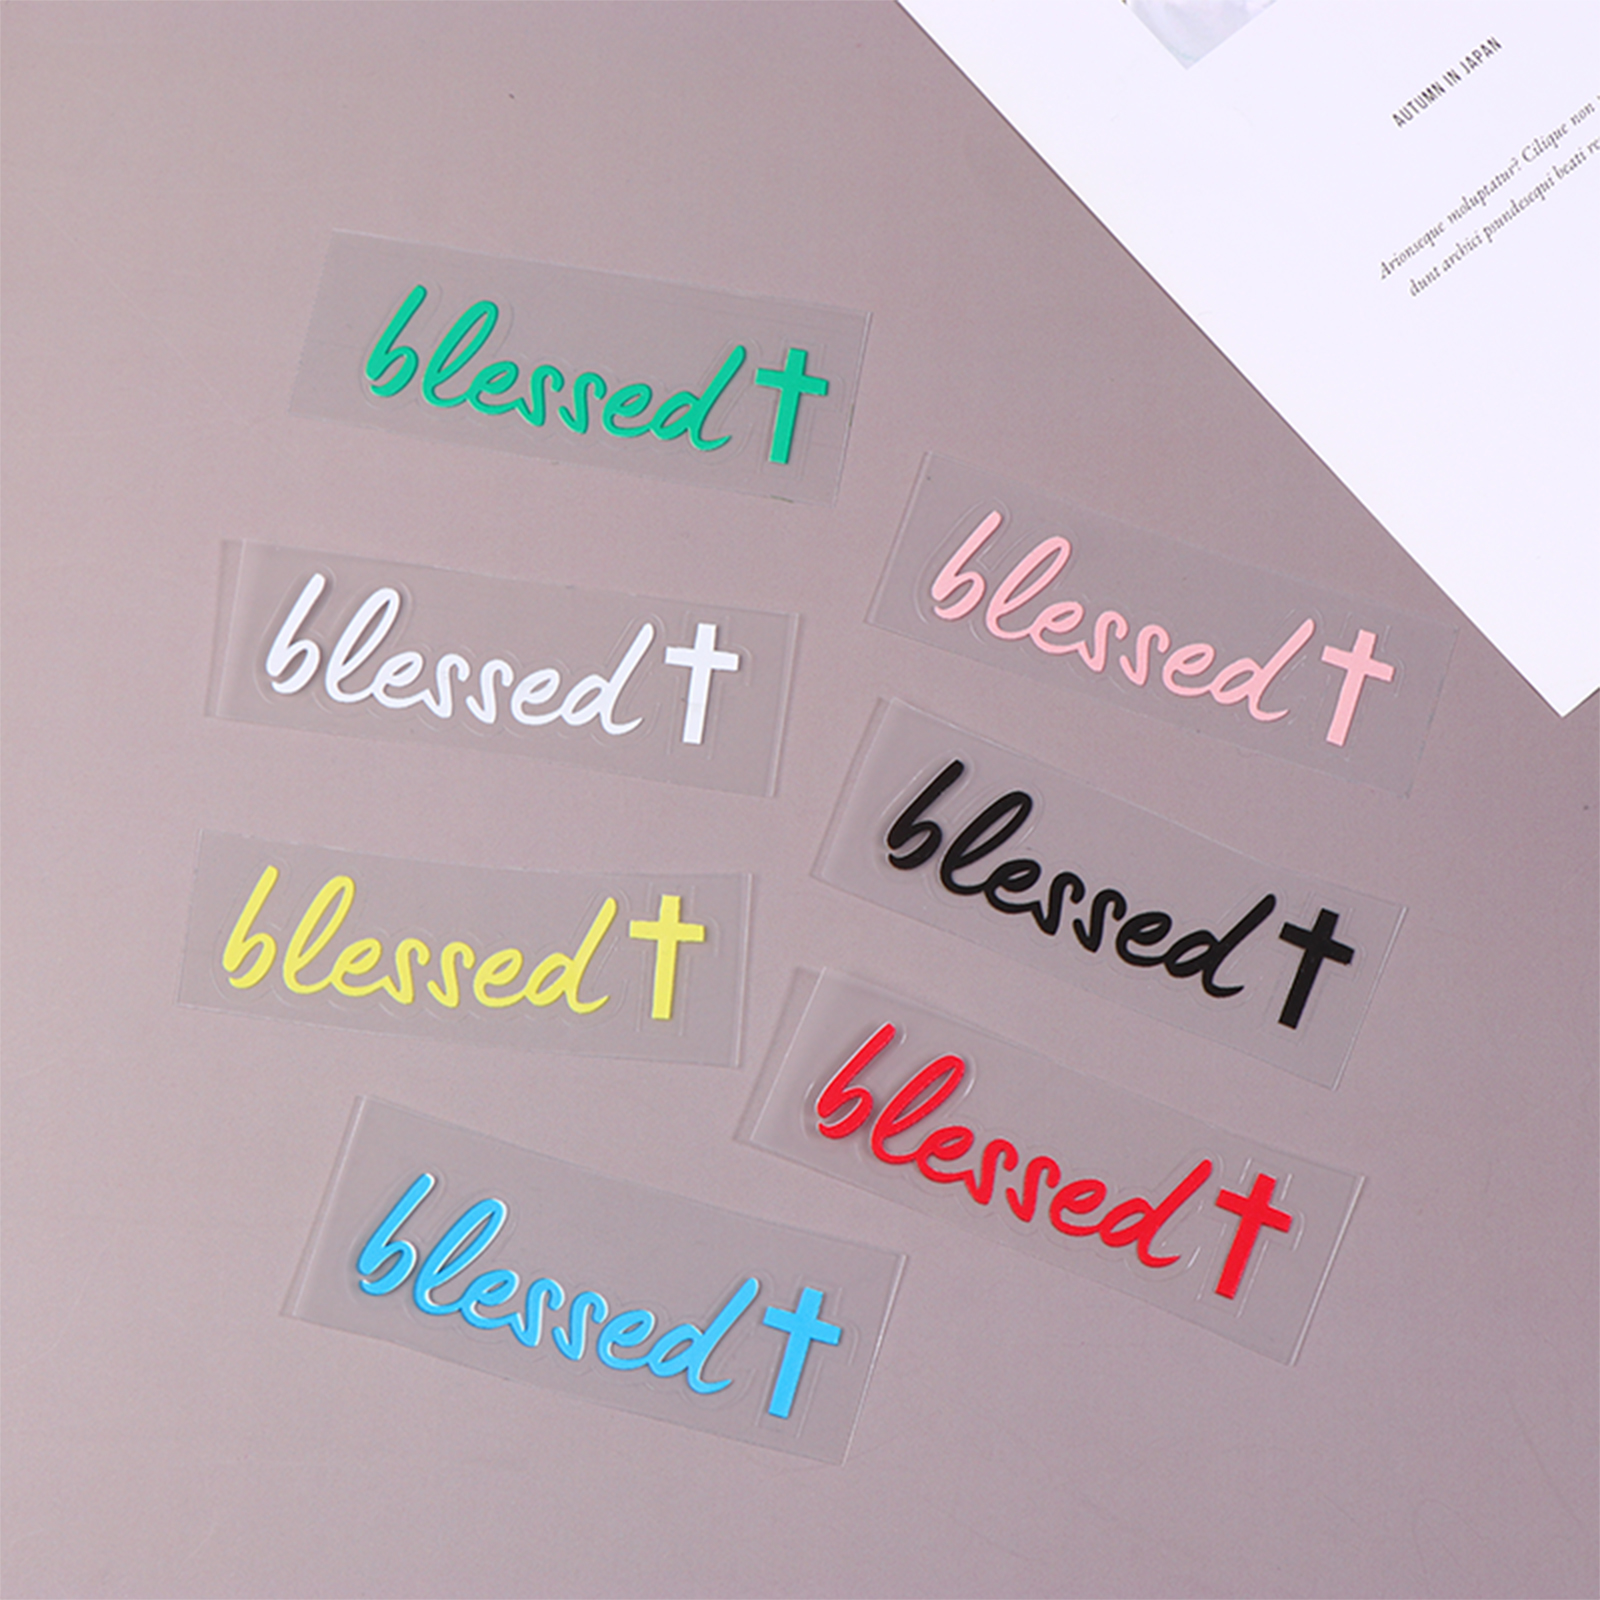 AUTUMN IN JAPAN
Arionseque moluptatur? Cilique non
dunt archici psundesequi beati
blessed
blessed
blessed
blessed
blessed
blessed
blessed